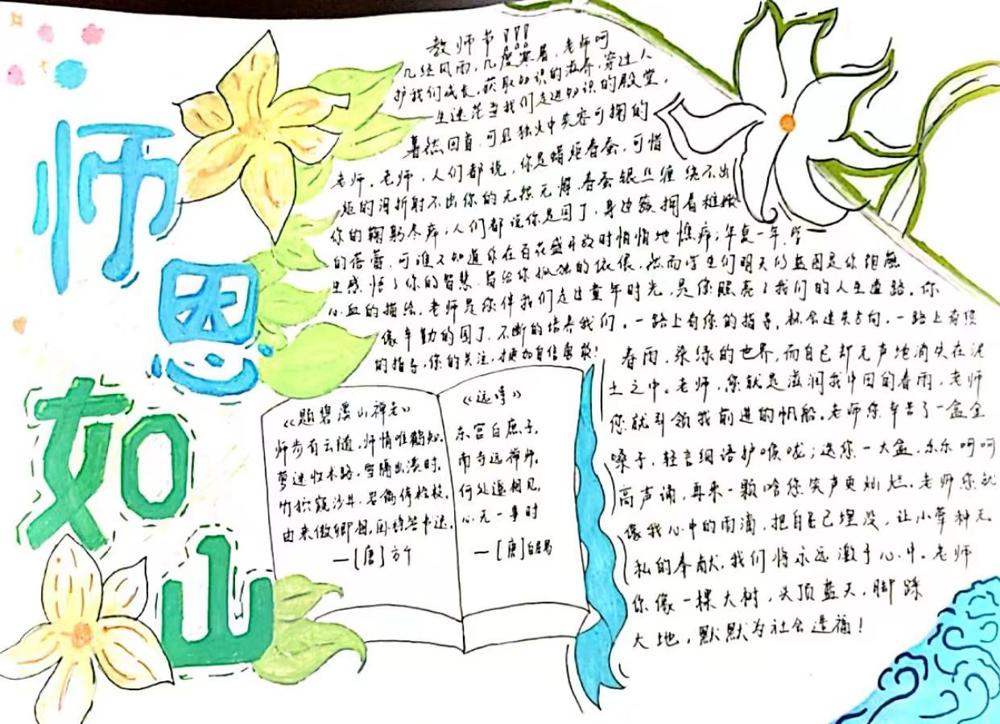 师
恩
如
山
教师节!!!
几经风雨,几度寒暑,老师呵
护我们成长,获取知识的滋养,穿过人
生迷茫当我们走进知识的殿堂,
蓦然回首,可
老师,老师,人们都说,你是蜡炬春蚕,可惜
炬的泪折射不出你的无怨无悔春蚕银丝缠绕不出
你的鞠躬尽瘁;人们都说你是园丁,身边簇拥着稚嫩
的蓓蕾,可谁不知道你在百花盛开的时悄悄地憔瘁;年复一年,
你的智慧,留给你孤独的
心血的描绘,老师是您伴我们走过童年时光,是您照亮了我们的人生道路。你
像辛勤的园丁,不断的培养我们。一路上有您的指导,就会迷失方向,一路上有您
的指导,您的关注,才更加自信勇敢!
春雨,染绿的世界,而自己却无声地消失在泥
土之中。老师,您就是滋润我心田的春雨,老师
您就引领我前进的帆船。老师您辛苦了一盒金
嗓子,轻言细语护喉咙;送您一大盒,乐乐呵呵
高声诵,再来一颗啥您笑声更灿烂。老师您就
像我心中的雨滴,把自己埋没,让小草种无
私的奉献,我们将永远激于心中。老师
你像一棵大树,头顶蓝天,脚踩
大地,默默为社会造福!
《题碧溪山禅老》
师步有云随,师情唯鹤知。
萝迷收术路,雪隔出溪时。
竹笕窥沙井,岩禽停桧枝。
由来傲卿相,卧稳答书迟。
—[唐]方干
《远师》
东宫白庶子,
南寺远禅师。
何处遥相见,
心无一事时
—[唐]白居易